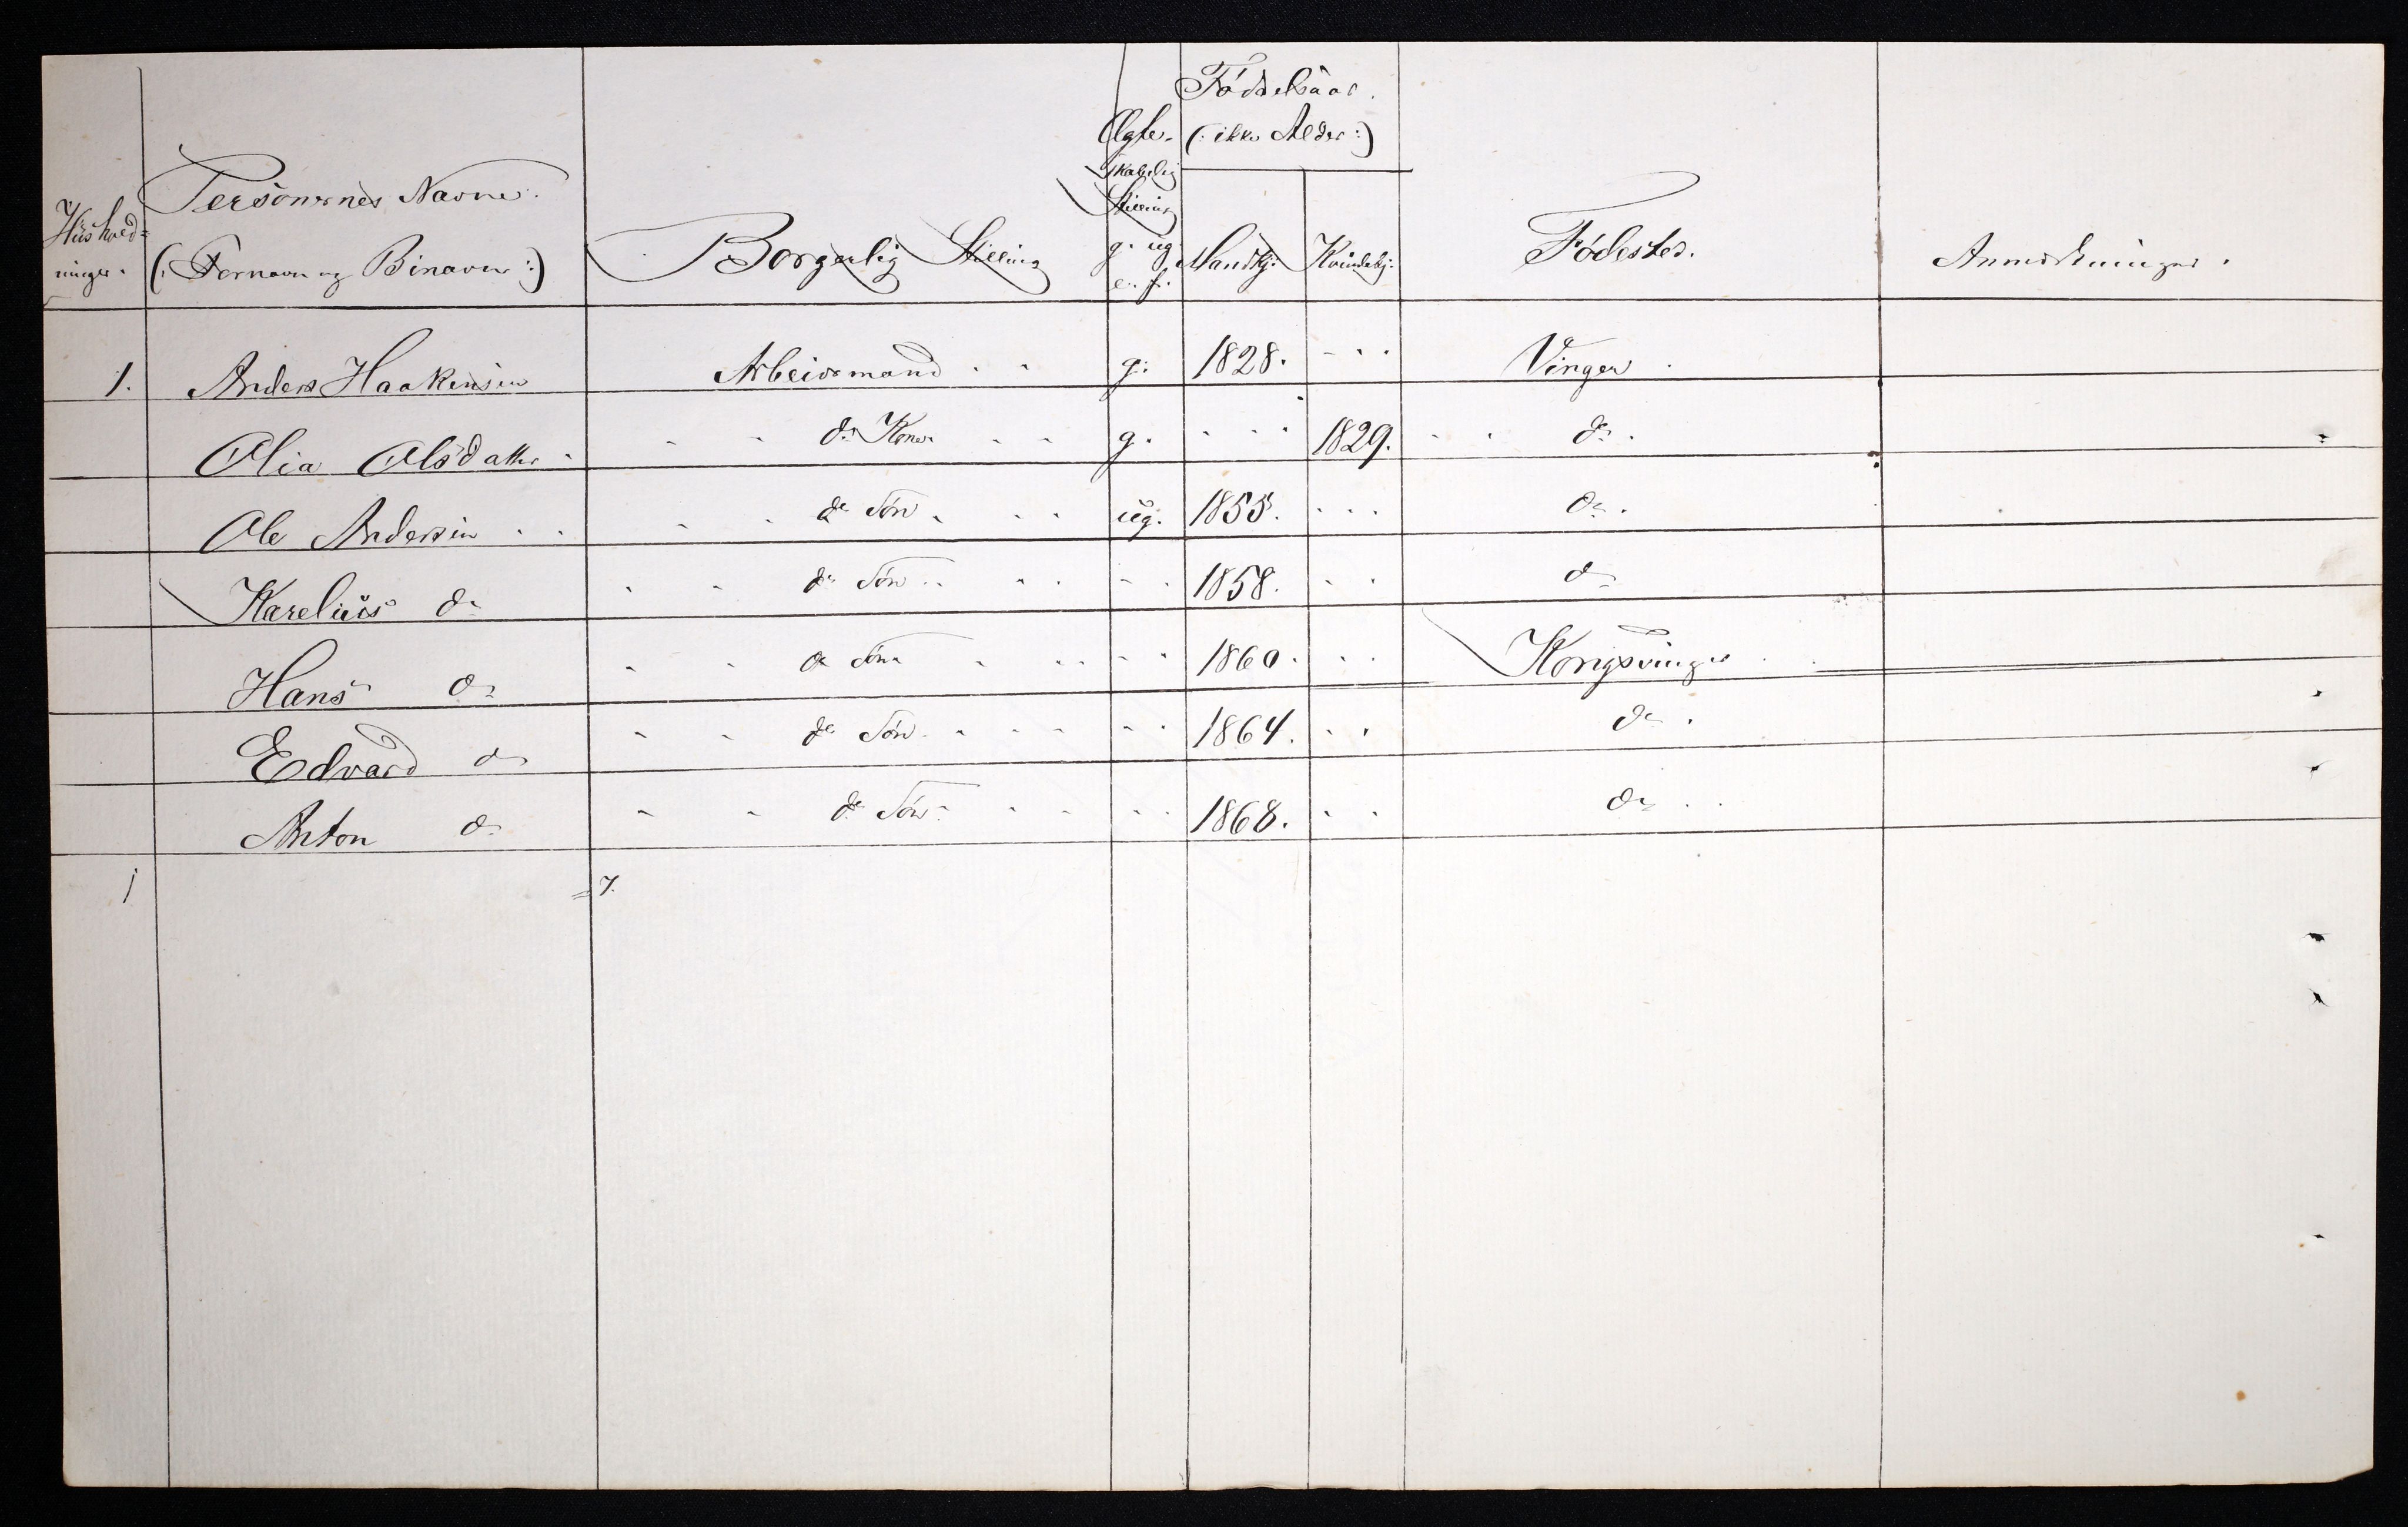 Fødselsaar.
Ægte- (: ikke Alder :)
skabelig
Personernes Navne. Stilling
Hushold=
ninger. (: Fornavn og Binavn :) Borgerlig Stilling g. ug. Mandkj: Kvindekj: Fødested. Anmerkninger.
e. f.
1. Anders Haakensen Arbeidsmand g. 1828. Vinger
Olia Olsdatter do Kone g. 1829. do.
Ole Andersen do Søn ug. 1855. do.
Karelius do do Søn 1858. do
Hans do do Søn 1860. Kongsvinger
Edvard do do Søn 1864. do.
Anton do do Søn 1868. do
1 =7.